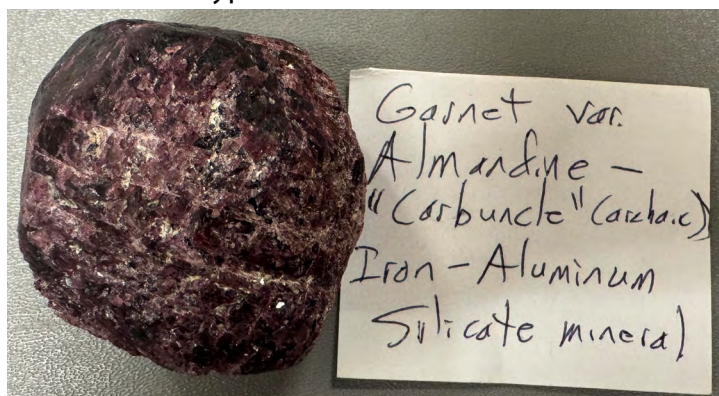 Garnet var.
Almandine –
"Carbuncle" (archaic)
Iron – Aluminum
Silicate mineral